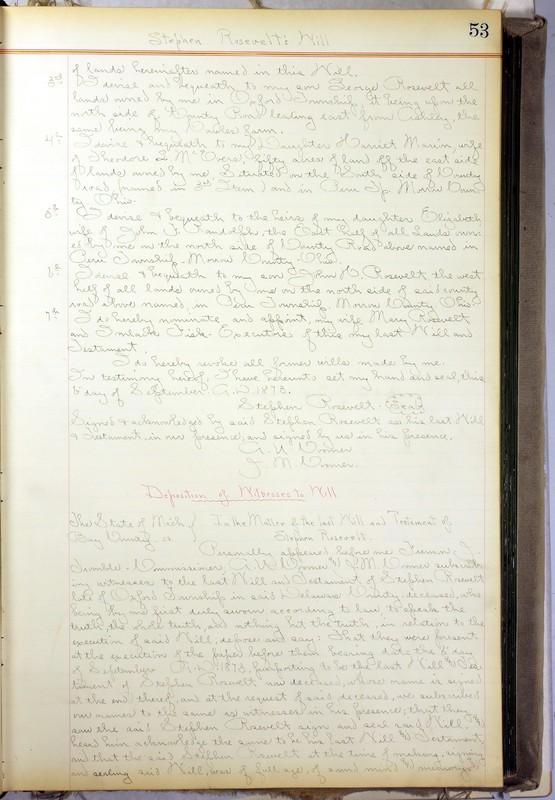 53
Stephen Rosevelt's Will
of lands hereinafter named in this Will.
3rd I devise and bequeath to my son George Rosevelt all
lands owned by me in Oxford Township, it being upon the
north side of County Road leading east from Ashley, the
same being my farm.
4th I devise & bequeath to my Daughter Harriet Marion, wife
of Theodore Mc fifty acres of land off the east side
of lands owned by me, situated on the South side of County
road (named in 3rd Item) and in Peru Tp. Morrow Coun-
ty Ohio.
5th I devise & bequeath to the heirs of my daughter Elizabeth
wife of John F. Randolph, the East half of all Lands own-
ed by me on the north side of County Road above named in
Peru Township, Morrow County, Ohio.
6th I devise & bequeath to my son John Rosevelt, the west
half of all lands owned by me on the north side of said county
road above named, in Peru Township, Morrow County Ohio
7th I do hereby nominate and appoint, my wife Mary Rosevelt
and Fisk Executors of this my last Will and
Testament.
I do hereby revoke all former wills made by me.
In testimony hereof, I have hereunto set my hand and seal, this
6 day of September A.D. 1873.
Stephen Rosevelt. Seal
Signed & acknowledged by said Stephen Rosevelt as his last Will
& Testament in our presence, and signed by us in his presence.
A. W.
J. M.
Deposition of Witnesses to Will
The State of Mich
Bay County. ss
In the Matter of the last Will and Testament of
Stephen Rosevelt.
Personally appeared before me Truman J.
Trimble Commissioner, A. W. & J. M. subscrib-
ing witnesses to the last Will and Testament of Stephen Rosevelt
late of Oxford Township in said Delaware County, deceased, who
being by me first duly sworn according to law to speak the
truth, the whole truth, and nothing but the truth, in relation to the
execution of said Will, depose and say: That they were present
at the execution of the paper before them bearing date the 6 day
of September A.D. 1873, purporting to be the last Will & Tes-
tament of Stephen Rosevelt now deceased, whose name is signed
at the end thereof, and at the request of said deceased, we subscribed
our names to the same as witnesses in his presence, that they
saw the said Stephen Rosevelt sign and seal said Will &
heard him acknowledge the same to be his last Will & Testament
and that the said Stephen Rosevelt at the time of making, signing
and sealing said Will, was of full age, of sound mind & memory &